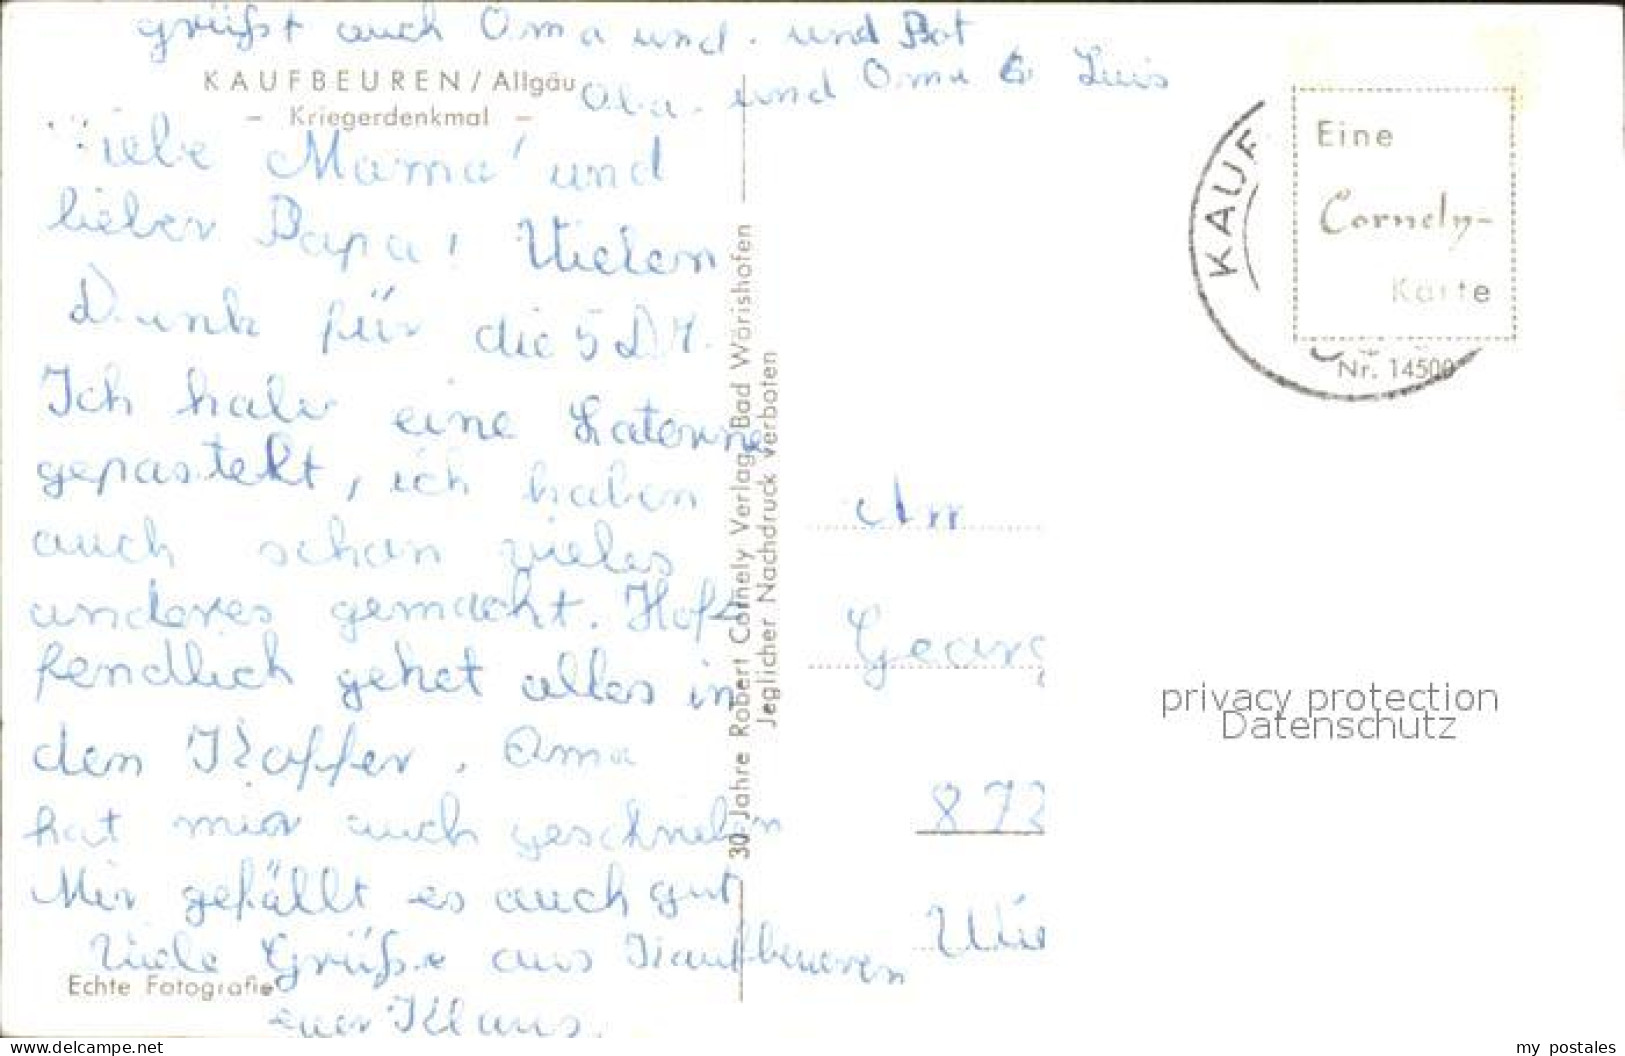 grüßt auch Oma und. und Pot
Oba. und Oma & Luis
KAUFBEUREN / Allgäu
- Kriegerdenkmal -
liebe Mama und
lieber Papa! Vielen
Dank für die 5 DM.
Ich habe eine Laterne
gepastelt, ich haben
auch schon vieles
anderes gemacht. Hof
fendlich gehet alles in
den Koffer. Oma
hat mir auch geschrieben
Mir gefällt es auch gut
Viele Grüße aus Kaufbeueren
euer Klaus.
Echte Fotografie
30 Jahre Robert Cornely Verlag, Bad Wörishofen
Jeglicher Nachdruck verboten
KAUF
Eine
Cornely-
Karte
Nr. 14500
An
Georg
873
privacy protection
Datenschutz
www.delcampe.net
my postales